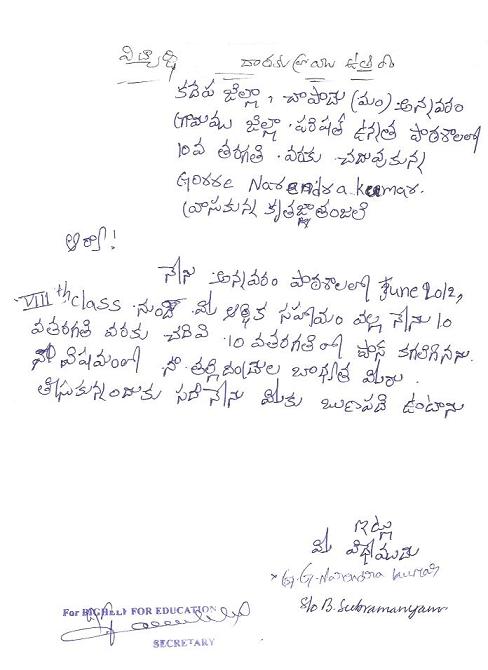 విద్యార్థి దారకు వ్రాయు ఉత్తరం
కడప జిల్లా, చాపాడు (మం) అన్నవరం
గ్రామము జిల్లా పరిషత్ ఉన్నత పాఠశాలలో
10వ తరగతి వరకు చదువుకున్న
Gorre Narendra kumar.
వ్రాసుకున్న కృతజ్ఞాతంజలి
ఆర్యా!
నేను అన్నవరం పాఠశాలలో June 2012,
VIII th class నుండి మీ ఆర్థిక సహాయం వల్ల నేను 10
వతరగతి వరకు చదివి 10 వతరగతి లో పాస్ కగలిగినను.
విషయంలో నా తల్లిదండ్రుల బాధ్యత మీరు
తీసుకున్నందుకు సదా నేను మీకు ఋణపడి ఉంటాను
ఇట్లు
మీ విధేయుడు
G. Narendra kumar
S/o B. Subramanyam
For BIGHELP FOR EDUCATION
SECRETARY